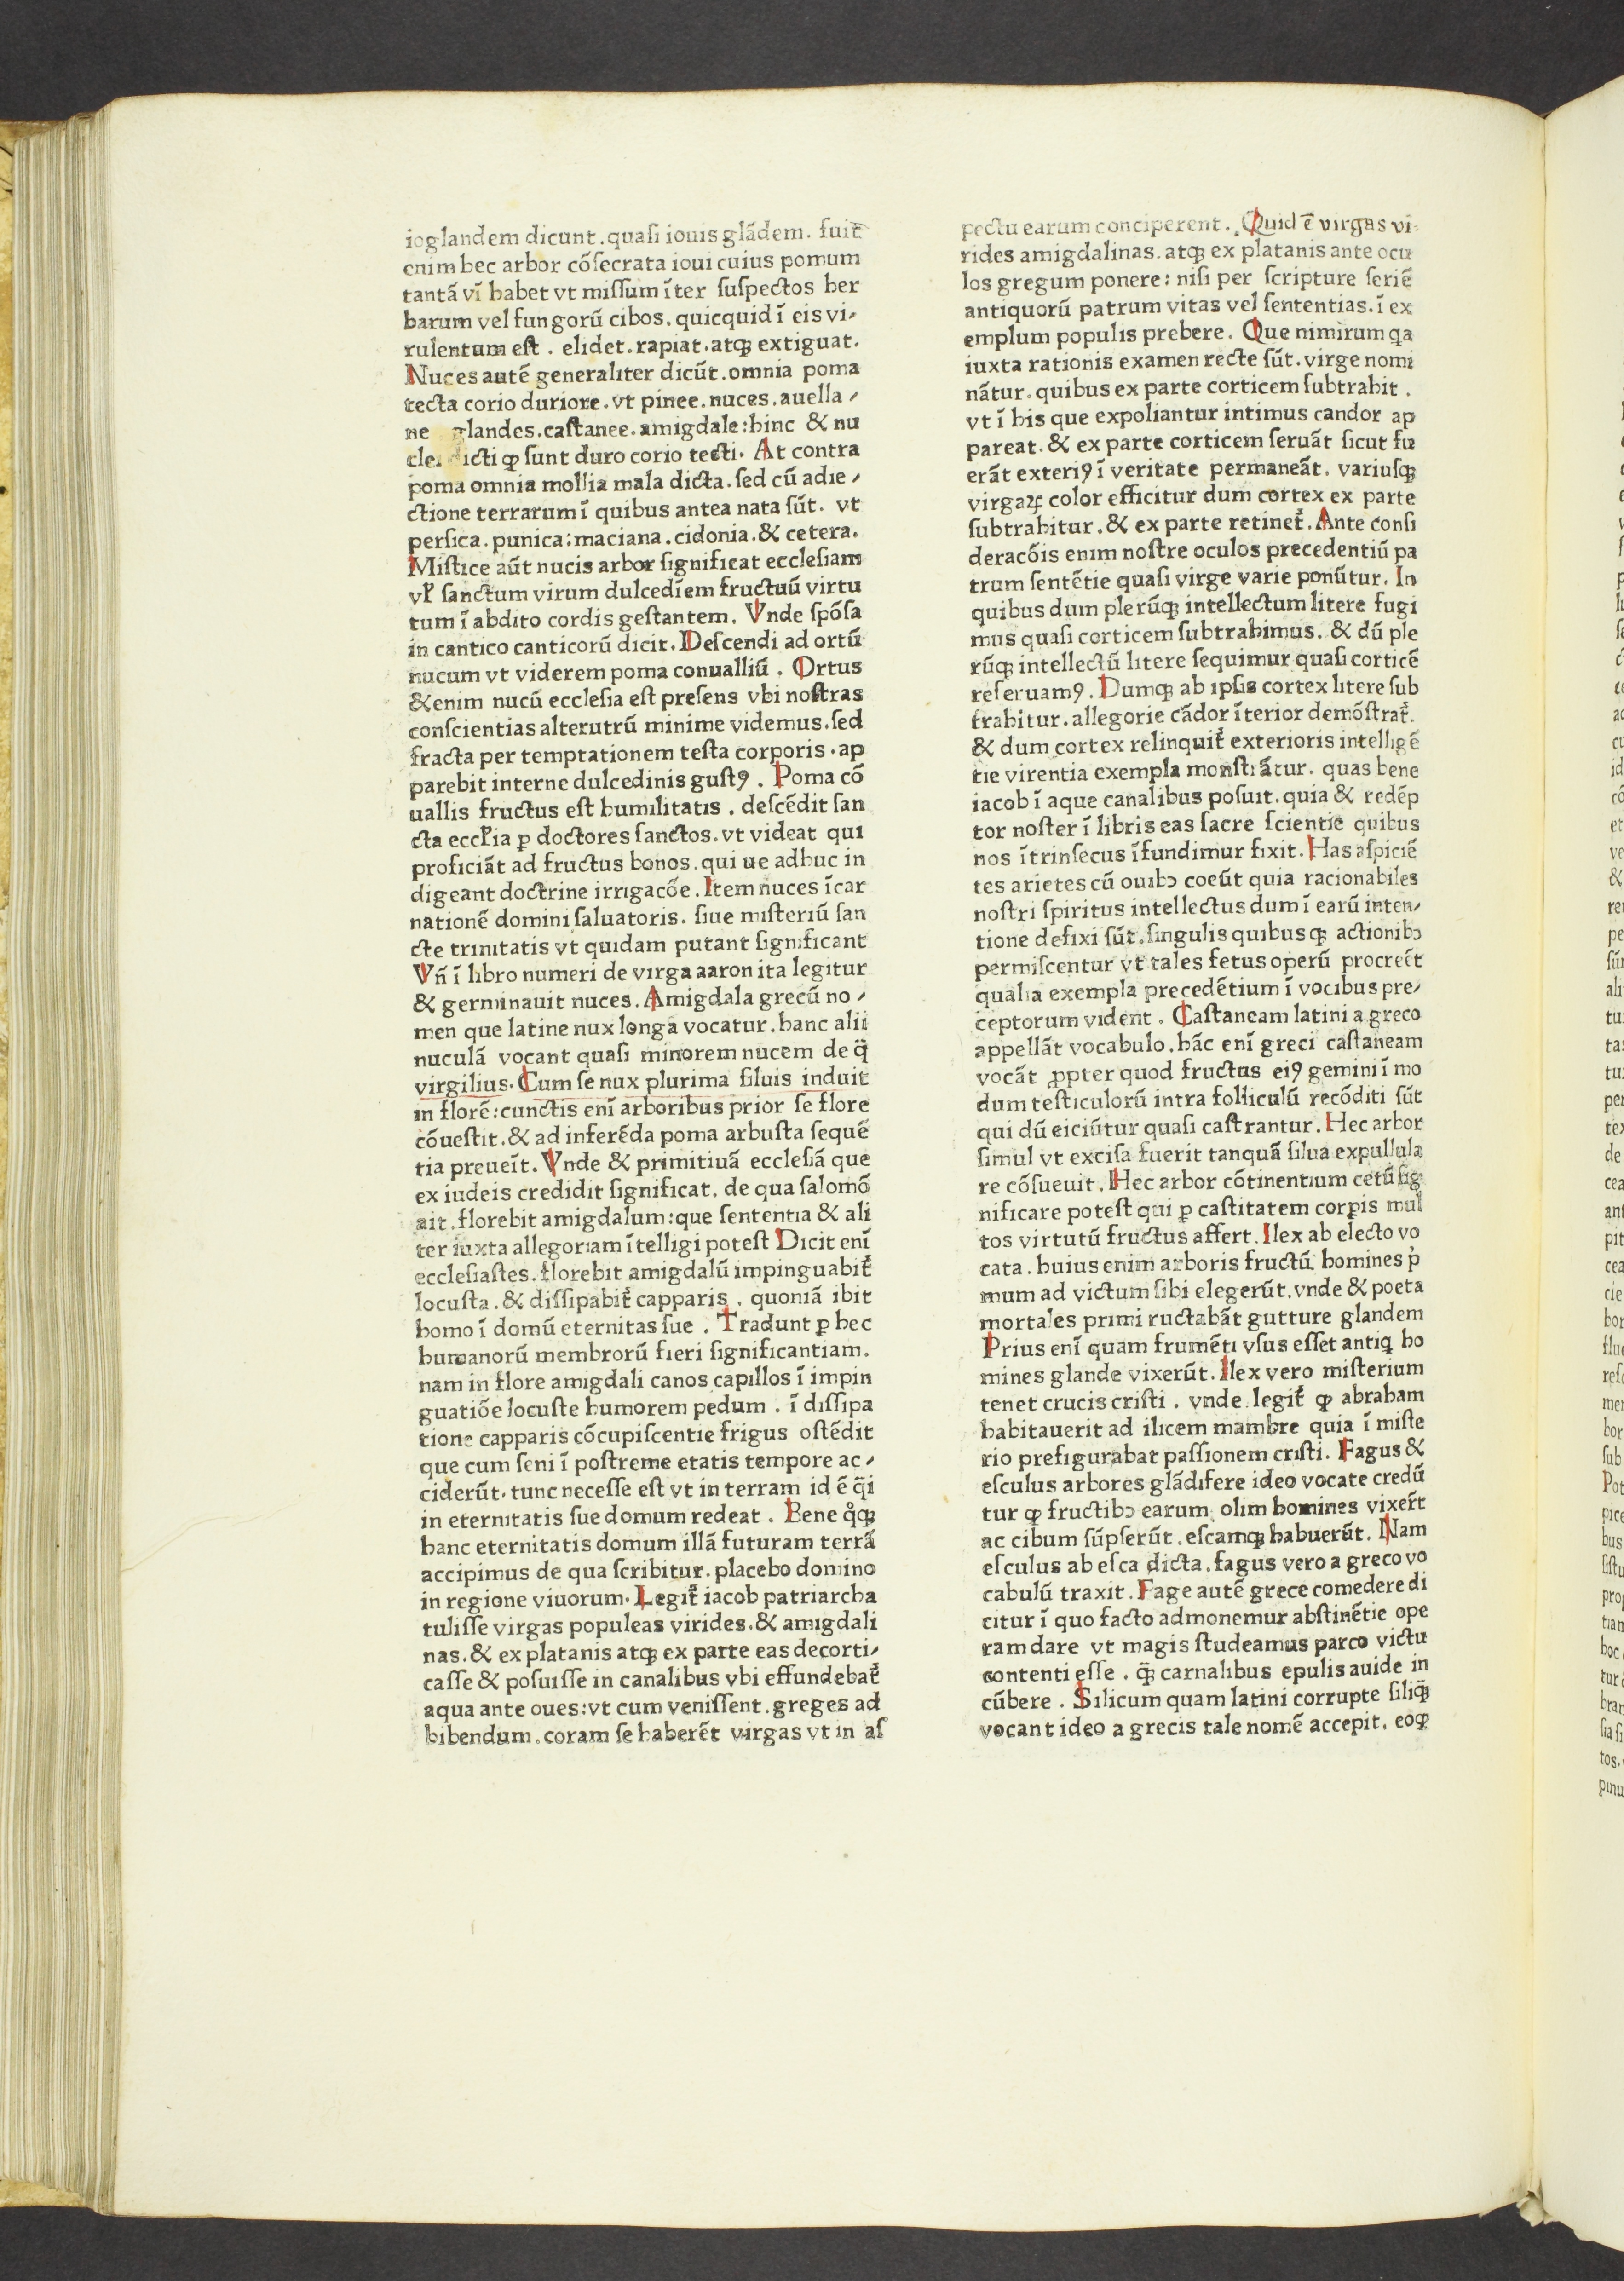 ioglandem dicunt.quaſi iouis glãdem. fuit̄
enim hec arbor cõſecrata ioui cuius pomum
tantã vĩ habet vt miſſum ĩter ſuſpectos her
barum vel fungorũ cibos.quicquid ĩ eis vi⸗
rulentum eſt . elidet.rapiat.atqꝫ extiguat.
Nuces autẽ generaliter dicũt.omnia poma
tecta corio duriore.vt pinee.nuces.auella⸗
ne glandes.caſtanee.amigdale:hinc & nu
clei dicti ꝙ ſunt duro corio tecti. At contra
poma omnia mollia mala dicta.ſed cũ adie⸗
ctione terrarum ĩ quibus antea nata ſũt. vt
perſica.punica:maciana.cidonia.& cetera.
Miſtice aũt nucis arbor ſignificat eccleſiam
vꝉ ſanctum virum dulcedĩem fructuũ virtu
tum ĩ abdito cordis geſtantem. Vnde ſpõſa
in cantico canticorũ dicit.Deſcendi ad ortũ
nucum vt viderem poma conualliũ . Ortus
&enim nucũ eccleſia eſt preſens vbi noſtras
conſcientias alterutrũ minime videmus.ſed
fracta per temptationem teſta corporis.ap
parebit interne dulcedinis guſtꝯ . Poma cõ
uallis fructus eſt humilitatis . deſcẽdit ſan
cta eccꝉia ꝑ doctores ſanctos.vt videat qui
proficiãt ad fructus bonos.qui ue adhuc in
digeant doctrine irrigacõe.Item nuces ĩcar
nationẽ domini ſaluatoris. ſiue miſteriũ ſan
cte trinitatis vt quidam putant ſignificant
Vñ ĩ libro numeri de virga aaron ita legitur
& germinauit nuces.Amigdala grecũ no⸗
men que latine nux longa vocatur.hanc alii
nuculã vocant quaſi minorem nucem de q̃
virgilius.Cum ſe nux plurima ſiluis induit
in florẽ:cunctis enĩ arboribus prior ſe flore
cõueſtit.& ad inferẽda poma arbuſta ſequẽ
tia preueĩt.Vnde & primitiuã eccleſiã que
ex iudeis credidit ſignificat. de qua ſalomõ
ait.florebit amigdalum:que ſententia & ali
ter iuxta allegoriam ĩtelligi poteſt Dicit enĩ
eccleſiaſtes.florebit amigdalũ impinguabit᷑
locuſta.& diſſipabit᷑ capparis . quoniã ibit
homo ĩ domũ eternitas ſue . Tradunt ꝑ hec
humanorũ membrorũ fieri ſignificantiam.
nam in flore amigdali canos capillos ĩ impin
guatiõe locuſte humorem pedum . ĩ diſſipa
tione capparis cõcupiſcentie frigus oſtẽdit
que cum ſeni ĩ poſtreme etatis tempore ac⸗
ciderũt.tunc neceſſe eſt vt in terram id ẽ q̃i
in eternitatis ſue domum redeat . Bene qͦqꝫ
hanc eternitatis domum illã futuram terrã
accipimus de qua ſcribitur.placebo domino
in regione viuorum.Legit᷑ iacob patriarcha
tuliſſe virgas populeas virides.& amigdali
nas.& ex platanis atqꝫ ex parte eas decorti⸗
caſſe & poſuiſſe in canalibus vbi effundebat᷑
aqua ante oues:vt cum veniſſent.greges ad
bibendum.coram ſe haberẽt virgas vt in aſ
pectu earum conciperent. Quid ẽ virgas vi⸗
rides amigdalinas.atqꝫ ex platanis ante ocu
los gregum ponere: niſi per ſcripture ſeriẽ
antiquorũ patrum vitas vel ſententias.ĩ ex
emplum populis prebere. Que nimirum qa
iuxta rationis examen recte ſũt.virge nomi
nãtur.quibus ex parte corticem ſubtrahit .
vt ĩ his que expoliantur intimus candor ap
pareat.& ex parte corticem ſeruãt ſicut fu
erãt exteriꝯ ĩ veritate permaneãt. variuſqꝫ
virgaꝝ color efficitur dum cortex ex parte
ſubtrahitur.& ex parte retinet᷑.Ante conſi
deracõis enim noſtre oculos precedentiũ pa
trum ſentẽtie quaſi virge varie ponũtur. In
quibus dum plerũqꝫ intellectum litere fugi
mus quaſi corticem ſubtrahimus. & dũ ple
rũqꝫ intellectũ litere ſequimur quaſi corticẽ
reſeruamꝯ. Dumqꝫ ab ipſis cortex litere ſub
trahitur.allegorie cãdor ĩterior demõſtrat᷑.
& dum cortex relinquit᷑ exterioris intelligẽ
tie virentia exempla monſtrãtur. quas bene
iacob ĩ aque canalibus poſuit.quia & redẽp
tor noſter ĩ libris eas ſacre ſcientie quibus
nos ĩtrinſecus ĩfundimur fixit.Has aſpiciẽ
tes arietes cũ ouibꝫ coeũt quia racionabiles
noſtri ſpiritus intellectus dum ĩ earũ inten⸗
tione defixi ſũt.ſingulis quibus qꝫ actionibꝫ
permiſcentur vt tales fetus operũ procreẽt
qualia exempla precedẽtium ĩ vocibus pre⸗
ceptorum vident . Caſtaneam latini a greco
appellãt vocabulo.hãc enĩ greci caſtaneam
vocãt ꝓpter quod fructus eiꝯ gemini ĩ mo
dum teſticulorũ intra folliculũ recõditi ſũt
qui dũ eiciũtur quaſi caſtrantur. Hec arbor
ſimul vt exciſa fuerit tanquã ſilua expullula
re cõſueuit.Hec arbor cõtinentium cetũ ſig
nificare poteſt qui ꝑ caſtitatem corꝑis mul
tos virtutũ fructus affert.Ilex ab electo vo
cata.huius enim arboris fructũ homines p̍
mum ad victum ſibi elegerũt.vnde & poeta
mortales primi ructabãt gutture glandem
Prius enĩ quam frumẽti vſus eſſet antiq ho
mines glande vixerũt.Ilex vero miſterium
tenet crucis criſti . vnde legit᷑ ꝙ abraham
habitauerit ad ilicem mambre quia ĩ miſte
rio prefigurabat paſſionem criſti. Fagus &
eſculus arbores glãdifere ideo vocate credũ
tur ꝙ fructibꝫ earum olim homines vixer̃t
ac cibum ſũpſerũt.eſcamqꝫ habuerũt. Nam
eſculus ab eſca dicta.fagus vero a greco vo
cabulũ traxit.Fage autẽ grece comedere di
citur ĩ quo facto admonemur abſtinẽtie ope
ram dare vt magis ſtudeamus parco victu
contenti eſſe . q̃ꝫ carnalibus epulis auide in
cũbere . Silicum quam latini corrupte ſiliq̃ꝫ
vocant ideo a grecis tale nomẽ accepit. eoꝙ